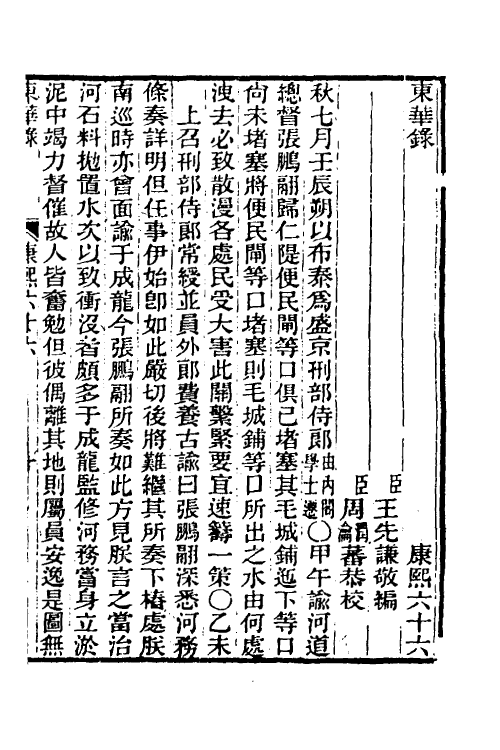 東華錄
康熙六十六
臣王先謙敬編
臣周潤蕃周瀹蕃恭校
秋七月壬辰朔以布泰爲盛京刑部侍郎由內閣學士遷〇甲午諭河道
總督張鵬翮歸仁隄便民閘等口俱已堵塞其毛城鋪迤下等口
尙未堵塞將便民閘等口堵塞則毛城鋪等口所出之水由何處
洩去必致散漫各處民受大害此關繫緊要宜速籌一策〇乙未
上召刑部侍郎常綬並員外郎費養古諭曰張鵬翮深悉河務
條奏詳明但任事伊始卽如此嚴切後將難繼其所奏下樁處朕
南巡時亦曾面諭于成龍今張鵬翮所奏如此方見朕言之當治
河石料拋置水次以致衝沒者頗多于成龍監修河務當身立淤
泥中竭力督催故人皆奮勉但彼偶離其地則屬員安逸是圖無
東華錄
康熙六十六